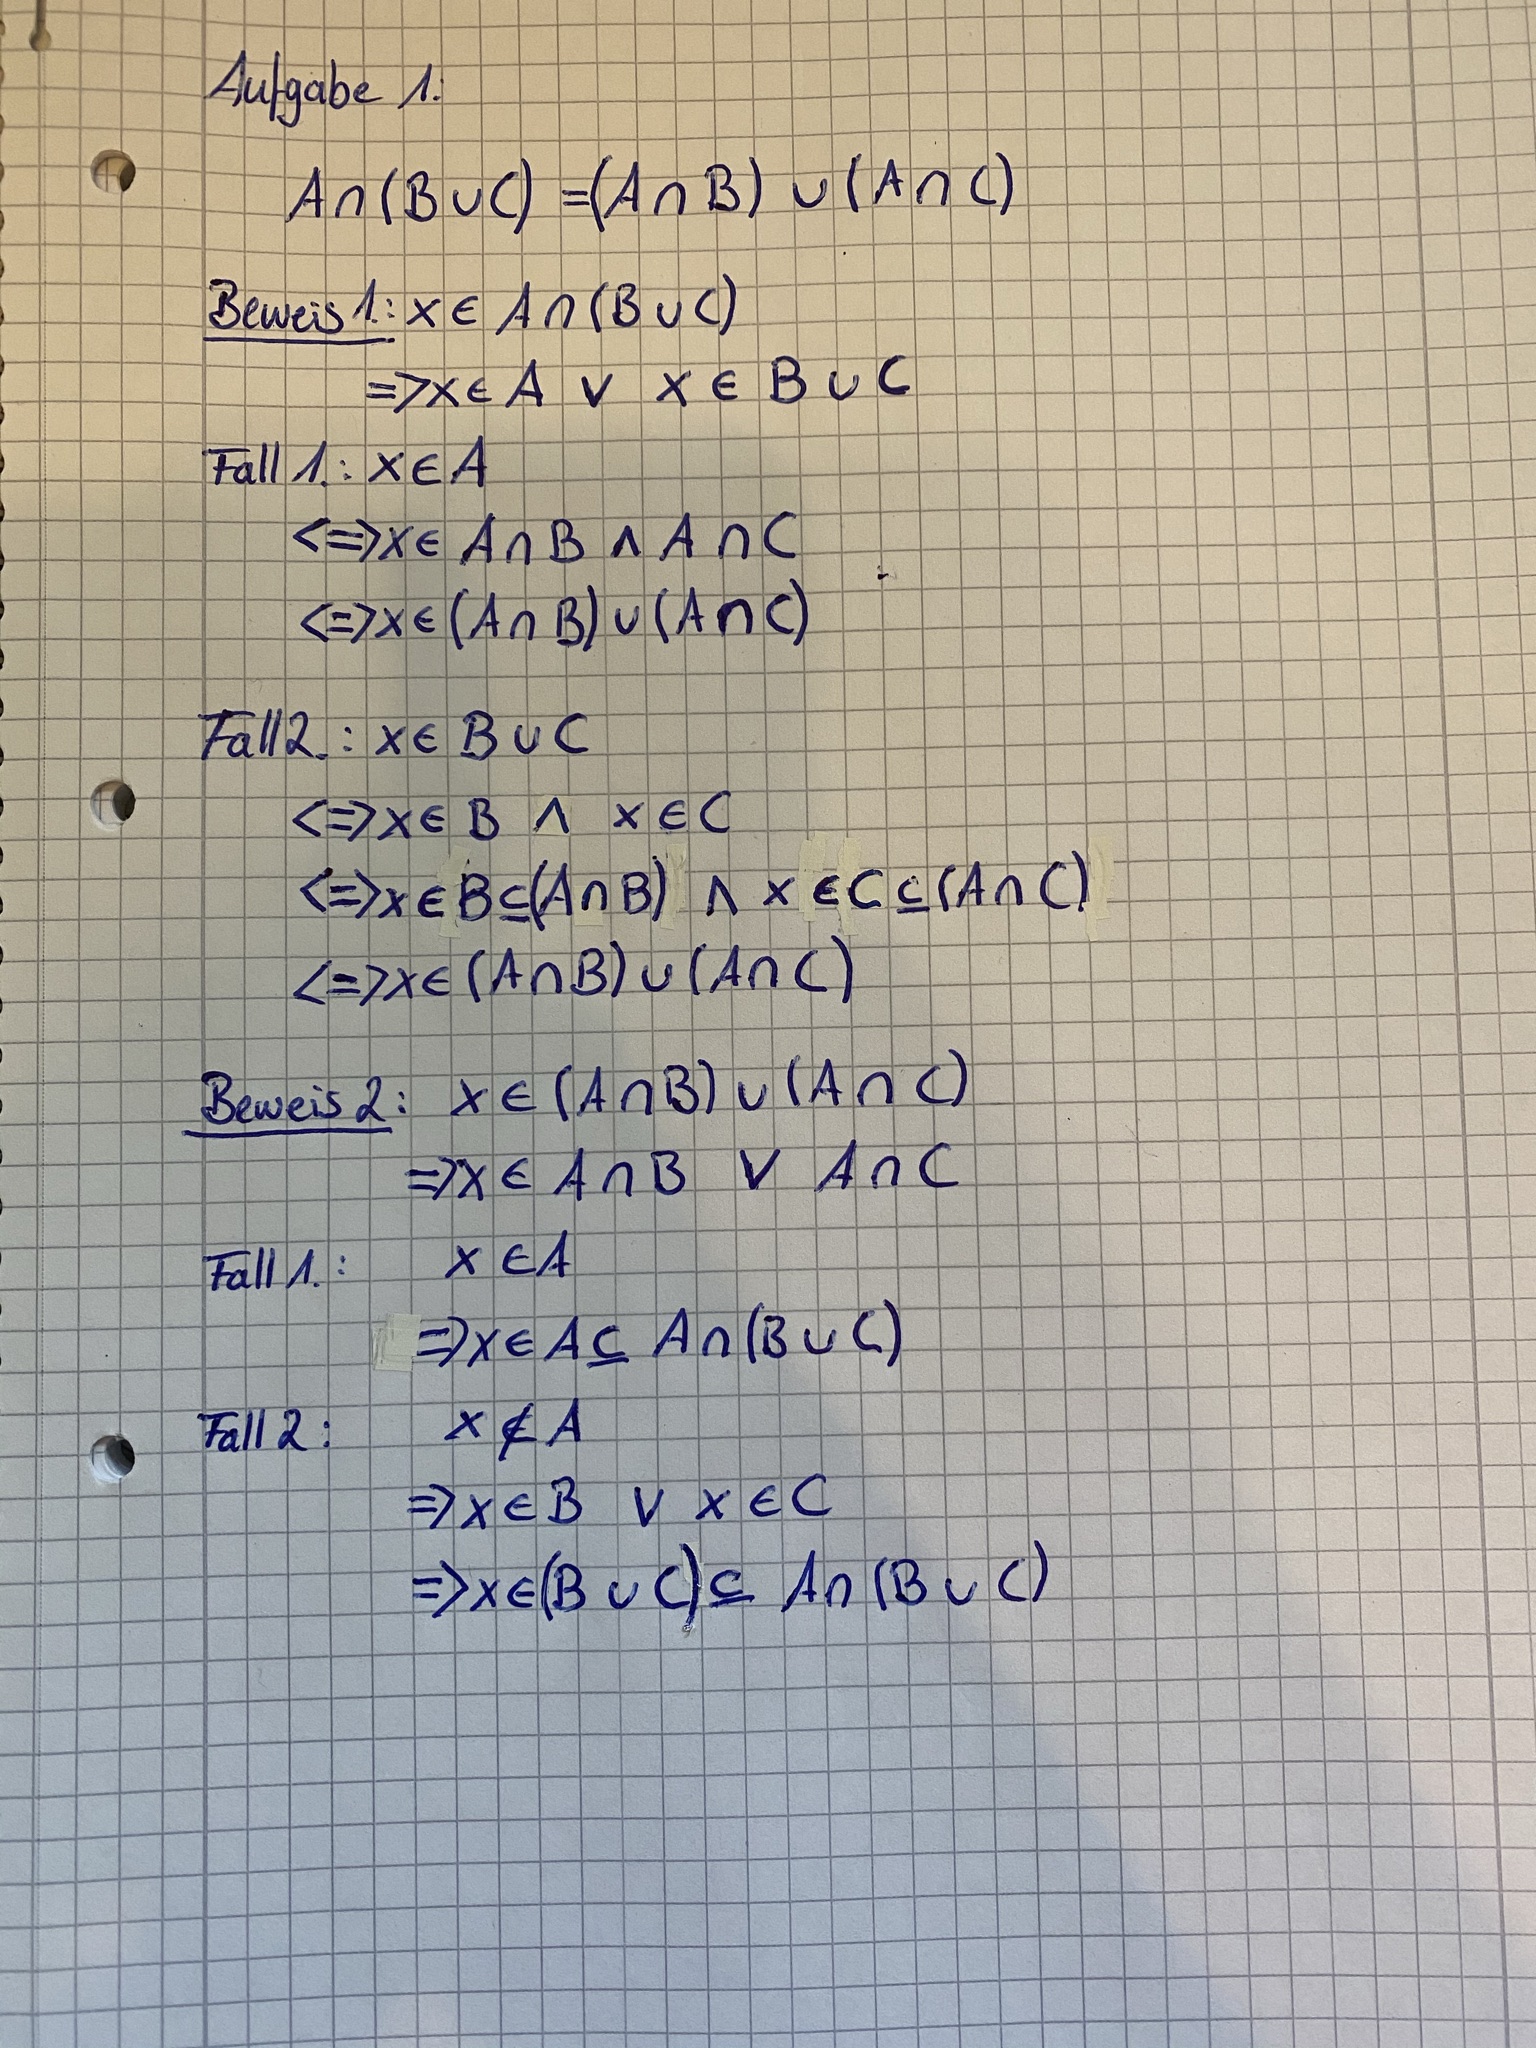 Aufgabe 1:
A∩(B∪C) =(A∩B) ∪ (A∩C)
Beweis 1.: x∈ A∩(B∪C)
=>x∈A ∨ x∈ B∪C
Fall 1.: x∈A
<=>x∈ A∩B ∧ A∩C
<=>x∈(A∩B)∪(A∩C)
Fall 2.: x∈ B∪C
<=>x∈ B ∧ x∈C
<=>x∈B⊆(A∩B) ∧ x∈C⊆(A∩C)
<=>x∈(A∩B)∪(A∩C)
Beweis 2: x∈(A∩B)∪(A∩C)
=>x∈ A∩B ∨ A∩C
Fall 1.: x∈A
=>x∈A⊆ A∩(B∪C)
Fall 2: x∉A
=>x∈B ∨ x∈C
=>x∈(B∪C)⊆ A∩(B∪C)